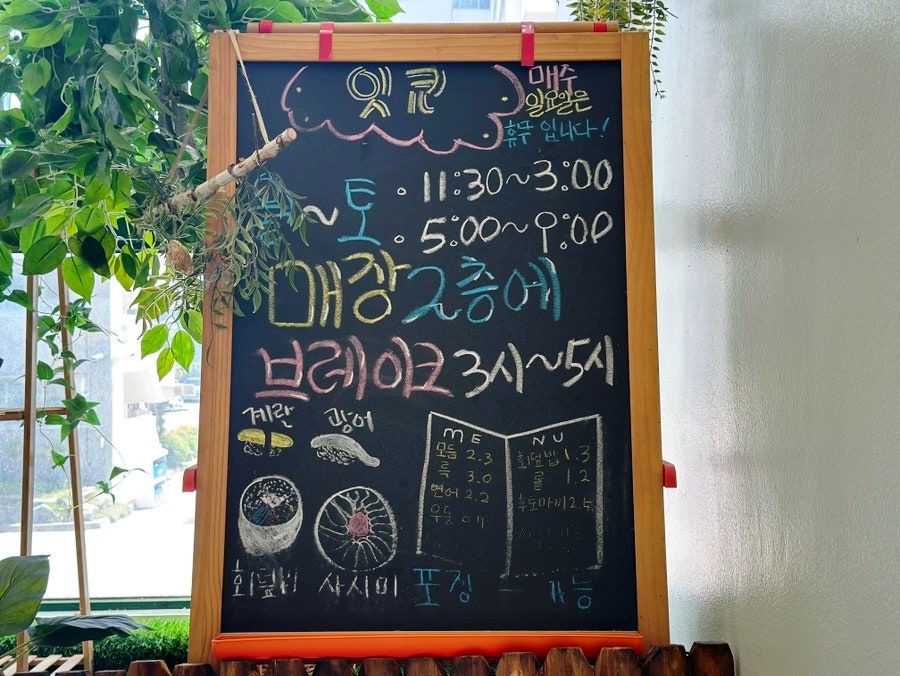 잇쿤
매주
일요일은
휴무 입니다!
~ 토 : 11:30~3:00
5:00~9:00
매장 2층에
브레이크 3시~5시
계란 광어
ME NU
모듬 2.3
특 3.0
연어 2.2
우동 0.7
회덮밥 1.3
롤 1.2
후토마끼 2.5
사시미
포장 가능